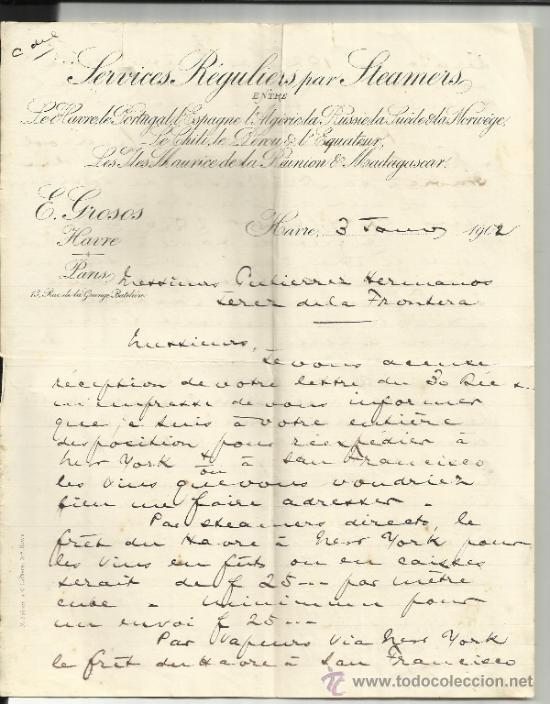 Services Réguliers par Steamers
ENTRE
Le Havre, le Portugal, l'Espagne, l'Algérie, la Russie, la Suède & la Norwège,
Le Chili, le Pérou & l'Equateur,
Les Iles Maurice de la Réunion & Madagascar.
E. Grosos
Havre
Paris
13, Rue de la Grange Batelière
Havre, 3 1902
Messieurs Gutierrez Hermanos
Jerez de la Frontera
Messieurs,
Je vous accuse
réception de votre lettre du 30 Déc &
m'empresse de vous informer
que je suis à votre entière
disposition pour réexpedier à
New York &/ou à San Francisco
les vins que vous voudriez
bien me faire adresser.
Par steamers directs, le
frêt du Havre à New York pour
les vins en fûts ou en caisses
serait de f 25 -- par mètre
cube - minimum pour
un envoi f 25 --
Par vapeurs via New York
le frêt du Havre à San Francisco
todocoleccion.net